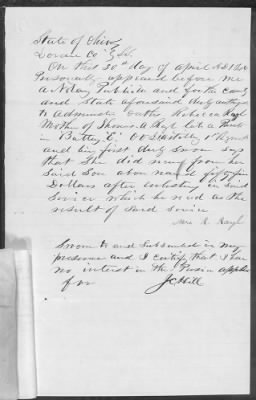 State of Ohio
Lorain Co } SS.
On this 20th day of April AD 18
Personally appeared before me
A Notary Public and for the County
and State aforesaid duly authorized
to Administer Oaths Rebecca Rayl
Mother of Thomas Rayl late a Private
in Battery C 1st Artillery
and being first duly sworn says
that She did receive from her
Said Son above named fifty five
Dollars after enlisting in Said
Service which he recd as the
result of Said Service
Mrs R. Rayl
Sworn to and Subscribed in my
presence and I certify that I have
no interest in the Pension applied
for J C Hill